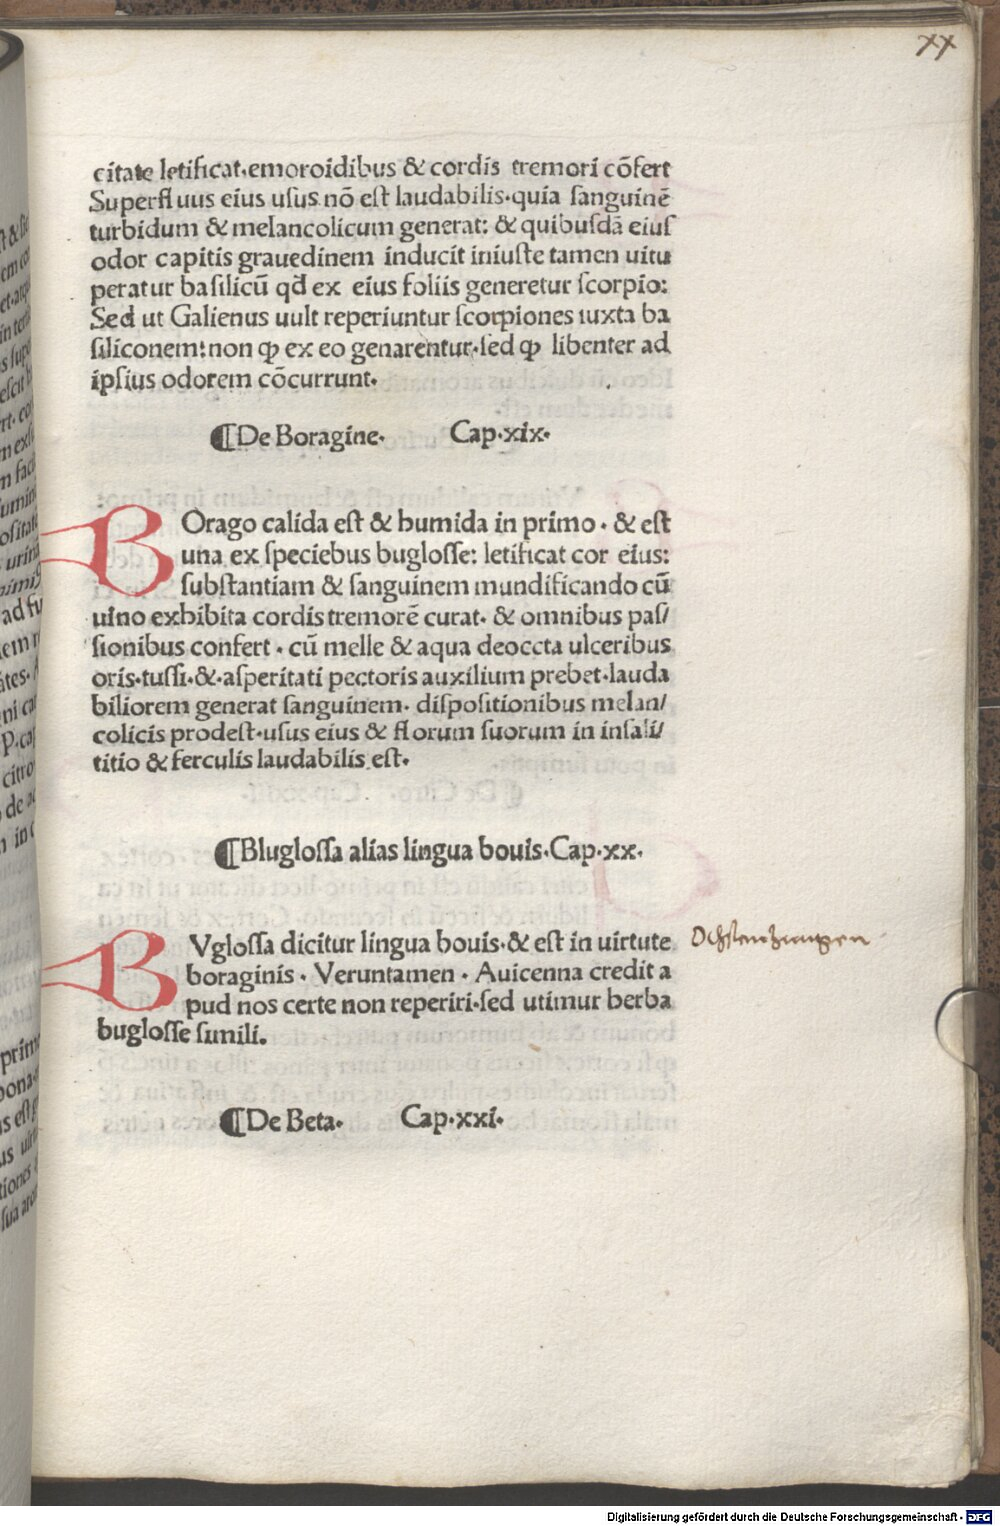 xx
citate letificat.emoroidibus & cordis tremori cōfert
Superfluus eius uſus nō eſt laudabilis.quia ſanguinē
turbidum & melancolicum generat: & quibuſdā eiuſ
odor capitis grauedinem inducit iniuſte tamen uitu
peratur baſilicū qđ ex eius foliis generetur ſcorpio:
Sed ut Galienus uult reperiuntur ſcorpiones iuxta ba
ſiliconem:non ꝙ ex eo genarentur.ſed ꝙ libenter ad
ipſius odorem cōcurrunt.
¶De Boragine. Cap.xix.
BOrago calida eſt & humida in primo . & eſt
una ex ſpeciebus bugloſſe: letificat cor eius:
ſubſtantiam & ſanguinem mundificando cū
uino exhibita cordis tremorē curat. & omnibus paſ/
ſionibus confert . cū melle & aqua deoccta ulceribus
oris.tuſſi.&.aſperitati pectoris auxilium prebet.lauda
biliorem generat ſanguinem. diſpoſitionibus melan/
colicis prodeſt.uſus eius & florum ſuorum in inſali/
titio & ferculis laudabilis eſt.
¶Blugloſſa alias lingua bouis.Cap.xx.
BVgloſſa dicitur lingua bouis.& eſt in uirtute
boraginis . Veruntamen . Auicenna credit a
pud nos certe non reperiri.ſed utimur herba
bugloſſe ſimili.
Ochſenzungen
¶De Beta. Cap.xxi.
Digitalisierung gefördert durch die Deutsche Forschungsgemeinschaft - DFG